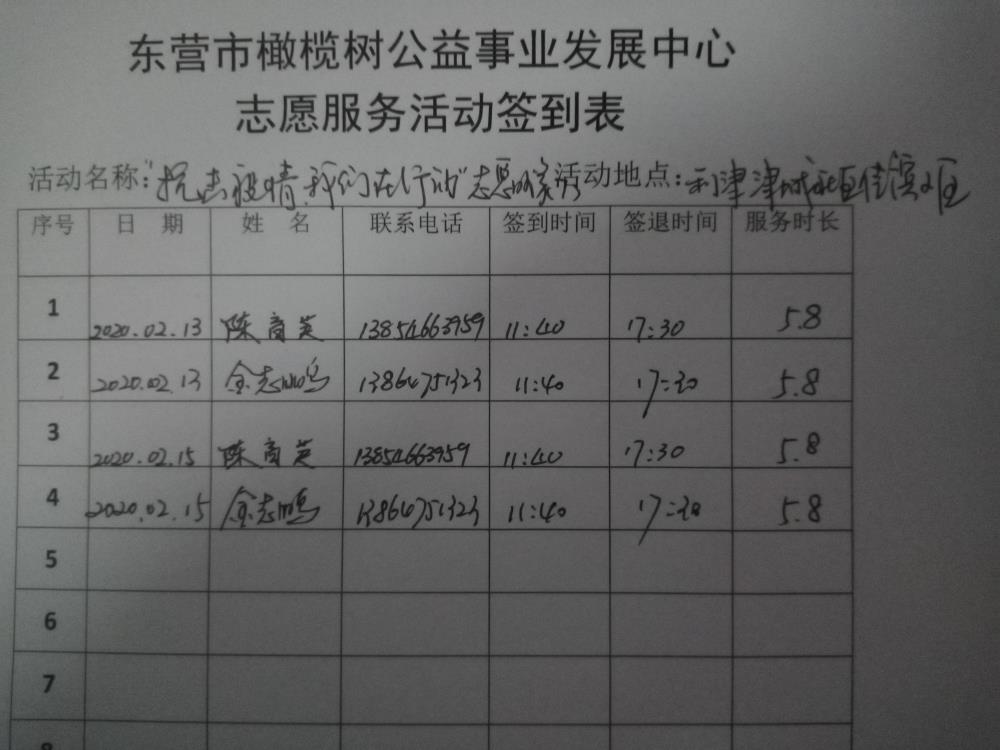 东营市橄榄树公益事业发展中心
志愿服务活动签到表
活动名称:"抗击疫情,我们在行动"志愿服务 活动地点:利津津城社区佳滨小区
序号 日 期 姓 名 联系电话 签到时间 签退时间 服务时长
1 2020.02.13 陈商英 13854663959 11:40 17:30 5.8
2 2020.02.13 金志鹏 13864751323 11:40 17:30 5.8
3 2020.02.15 陈商英 13854663959 11:40 17:30 5.8
4 2020.02.15 金志鹏 13864751323 11:40 17:30 5.8
5
6
7
8